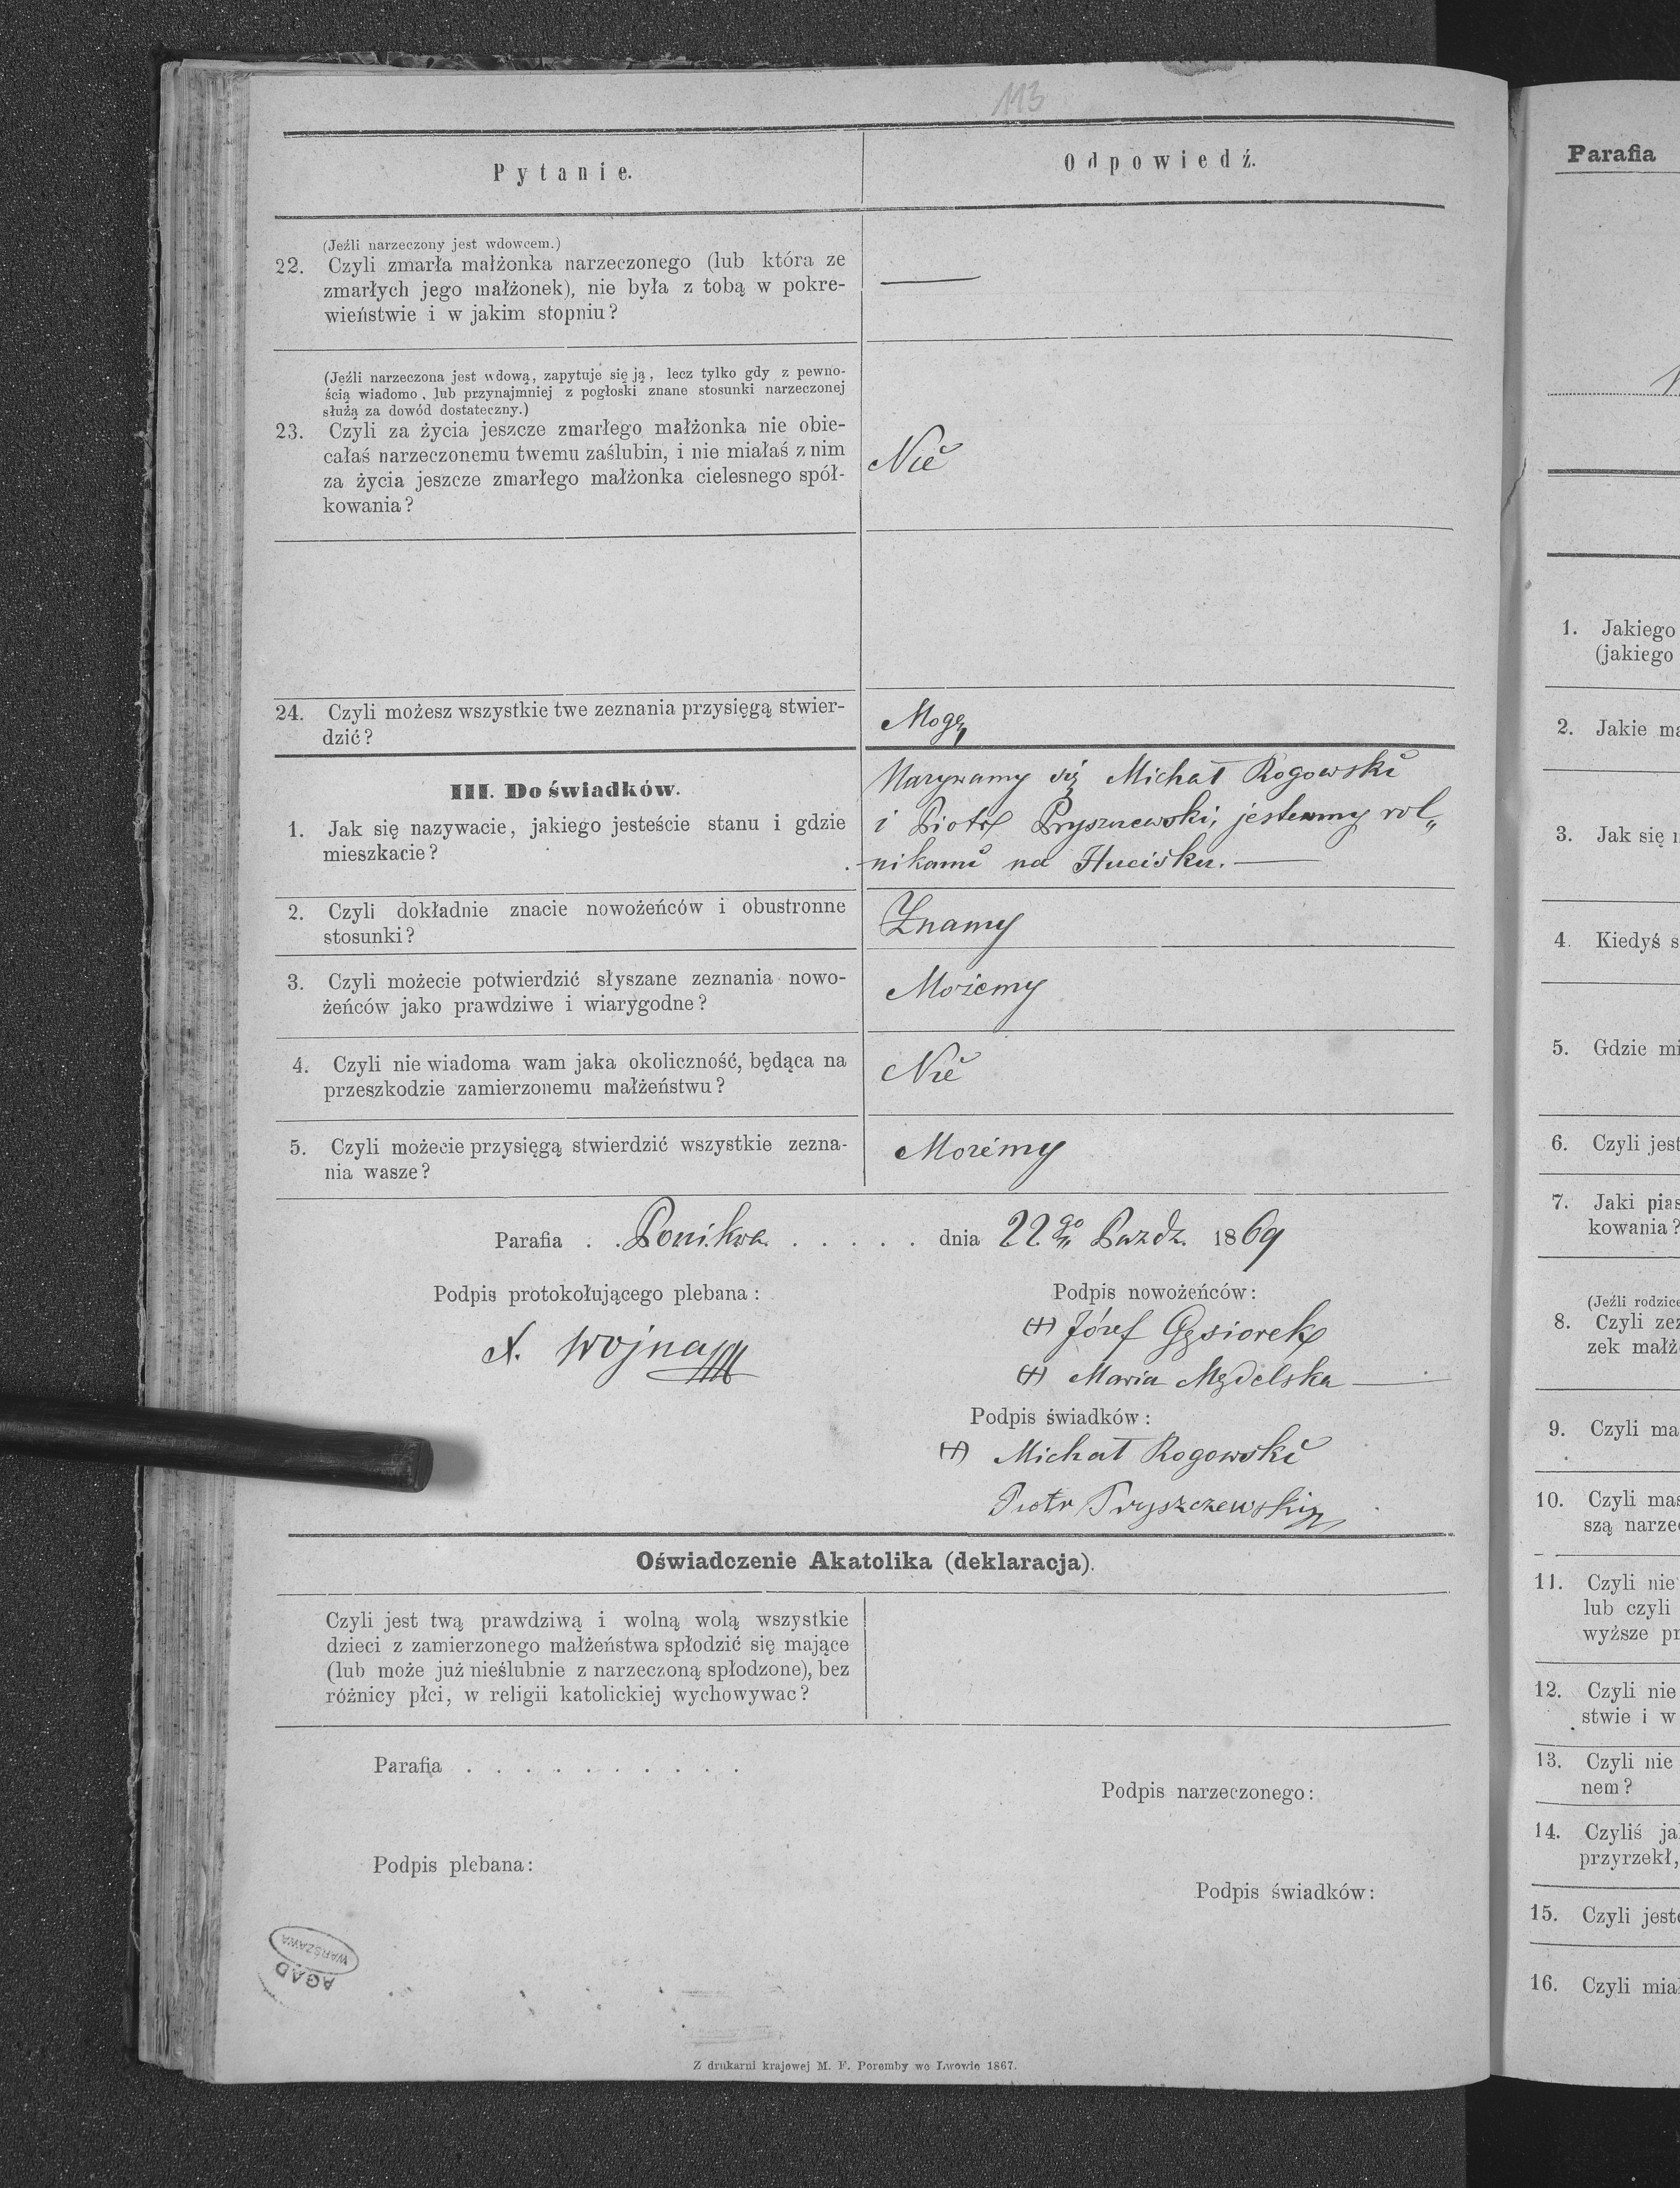 113
Pytanie.
Odpowiedź.
(Jeźli narzeczony jest wdowcem.)
22. Czyli zmarła małżonka narzeczonego (lub która ze
zmarłych jego małżonek), nie była z tobą w pokre-
wieństwie i w jakim stopniu?
(Jeźli narzeczona jest wdową, zapytuje się ją, lecz tylko gdy z pewno-
ścią wiadomo, lub przynajmniej z pogłoski znane stosunki narzeczonej
służą za dowód dostateczny.)
23. Czyli za życia jeszcze zmarłego małżonka nie obie-
całaś narzeczonemu twemu zaślubin, i nie miałaś z nim
za życia jeszcze zmarłego małżonka cielesnego spół-
kowania?
Nie
24. Czyli możesz wszystkie twe zeznania przysięgą stwier-
dzić?
Mogę
III. Do świadków.
1. Jak się nazywacie, jakiego jesteście stanu i gdzie
mieszkacie?
Nazywamy się Michał Rogowski
i Piotr Pryszczewski, jestesmy rol„
nikami na Hucisku.
2. Czyli dokładnie znacie nowożeńców i obustronne
stosunki?
Znamy
3. Czyli możecie potwierdzić słyszane zeznania nowo-
żeńców jako prawdziwe i wiarygodne?
Możemy
4. Czyli nie wiadoma wam jaka okoliczność, będąca na
przeszkodzie zamierzonemu małżeństwu?
Nie
5. Czyli możecie przysięgą stwierdzić wszystkie zezna-
nia wasze?
Możemy
Parafia . . Ponikwa . . . . . dnia 22go Pazdz. 1869
Podpis protokołującego plebana:
X. Wojna
Podpis nowożeńców:
(+) Józef Gąsiorek
(+) Maria Mędelska
Podpis świadków:
(+) Michał Rogowski
Piotr Pryszczewski
Oświadczenie Akatolika (deklaracja).
Czyli jest twą prawdziwą i wolną wolą wszystkie
dzieci z zamierzonego małżeństwa spłodzić się mające
(lub może już nieślubnie z narzeczoną spłodzone), bez
różnicy płci, w religii katolickiej wychowywac?
Parafia . . . . . . . . . .
Podpis narzeczonego:
Podpis plebana:
Podpis świadków:
AGAD
WARSZAWA
Z drukarni krajowej M. F. Poremby we Lwowie 1867.
Parafia
1. Jakiego
(jakiego
2. Jakie ma
3. Jak się
4. Kiedyś s
5. Gdzie mi
6. Czyli jest
7. Jaki pias
kowania?
(Jeźli rodzice
8. Czyli zez
zek małż
9. Czyli ma
10. Czyli mas
szą narze
11. Czyli nie
lub czyli
wyższe pr
12. Czyli nie
stwie i w
13. Czyli nie
nem?
14. Czyliś ja
przyrzekł,
15. Czyli jest
16. Czyli mia